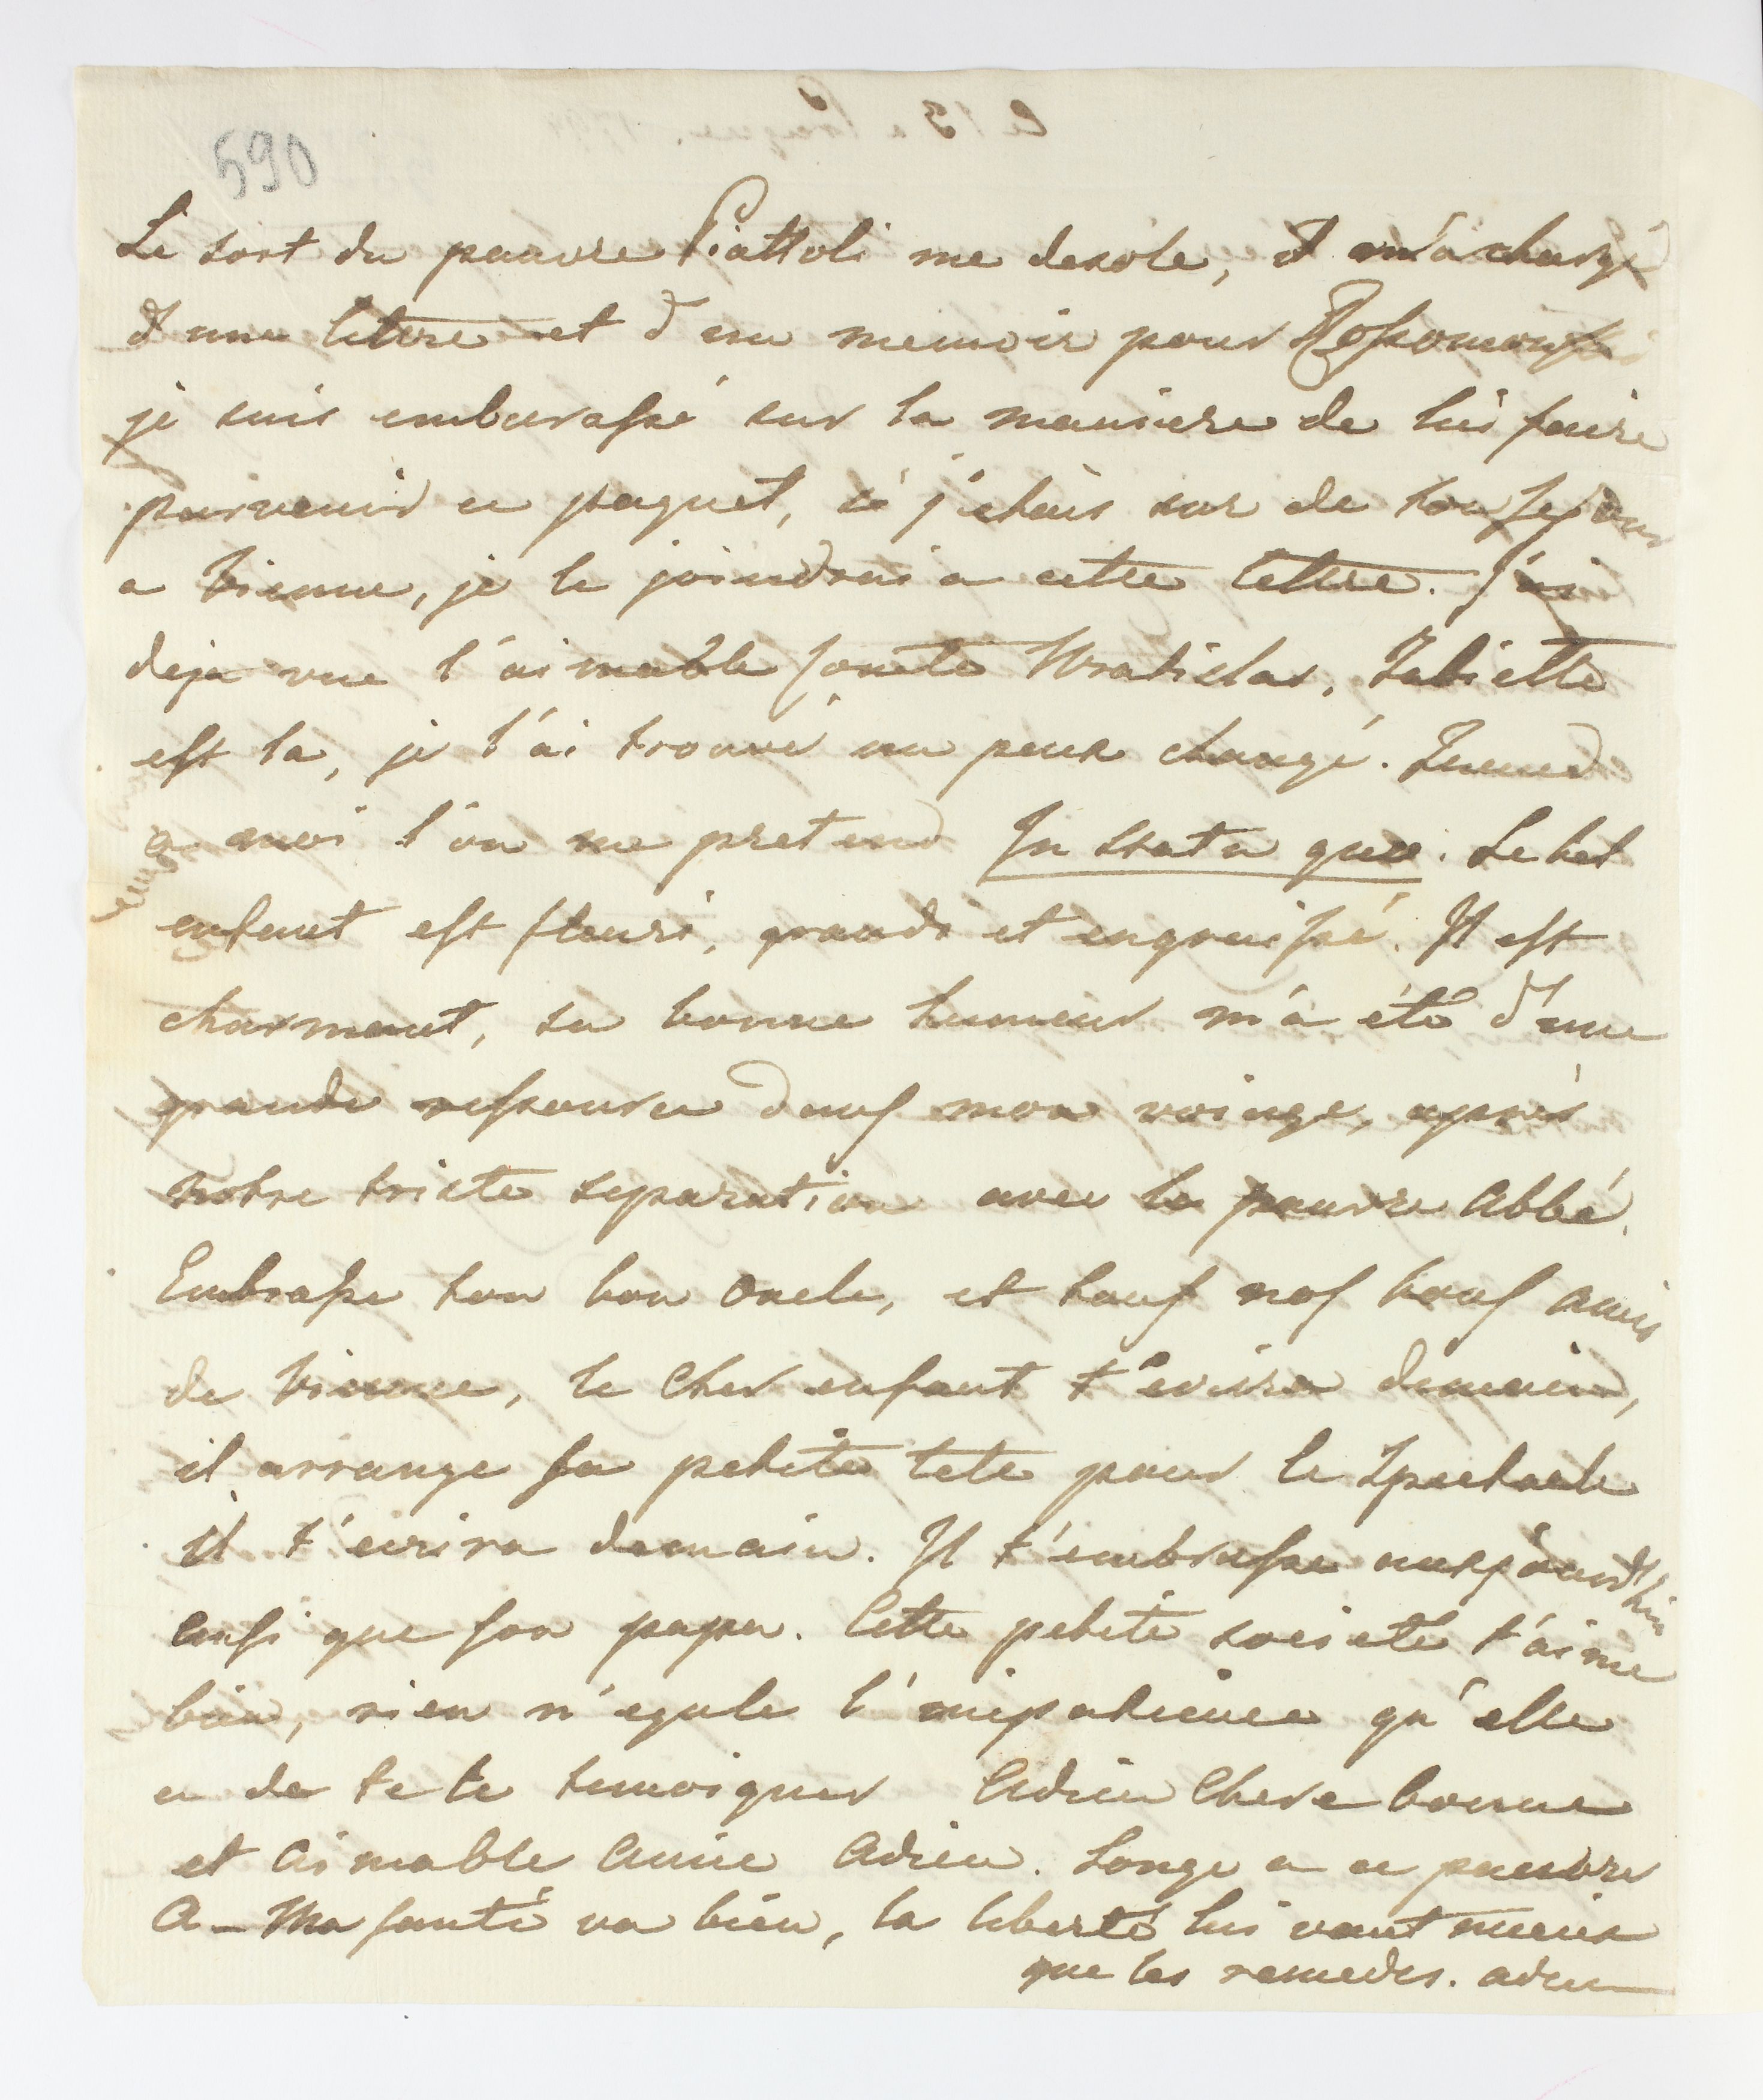 590
Le sort du pauvre Piattoli me desole, il m'a chargé
d'une lettre et d'un memoir pour
je suis embarassé sur la maniere de lui faire
parvenir ce paquet, si j'etais sur de son sejour
a Vienne, je le joindrai a cette lettre. J'ai
deja vue l'aimable Comte Wratislas,
est la, je l'ai trouvé un peux changé. Quand
a moi l'on me pretend In Statu quo. Le bel
enfant est fleuri, grandi et engraissé. Il est
charmant, sa bonne humeur m'a été d'une
grande ressource dans mon voiage, après
notre triste separation avec le pauvre Abbé.
Embrasse ton bon Oncle, et tous nos bons amis
de Vienne, le Cher enfant t'ecrira demain,
il arrange sa petite tete pour le Spectacle
il t'ecrira demain. Il t'embrasse aujourd'hui
ainsi que son papa. Cette petite societé t'aime
bien, rien n'egale l'impatience qu'elle
a de te le temoigner Adieu Chere bonne
et aimable Amie Adieu. Songe a ce pauvre
A - Ma santé va bien, la liberté lui vaut mieux
que les remedes. adieu